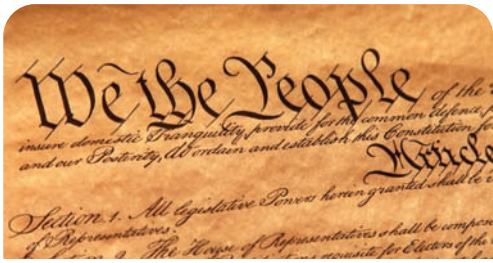 We the People of the
insure domestic Tranquility, provide for the common defence,
and our Posterity, do ordain and establish this Constitution for
Article
Section. 1. All legislative Powers herein granted shall be
of Representatives.
The House of Representatives shall be compos
requisite for Electors of the